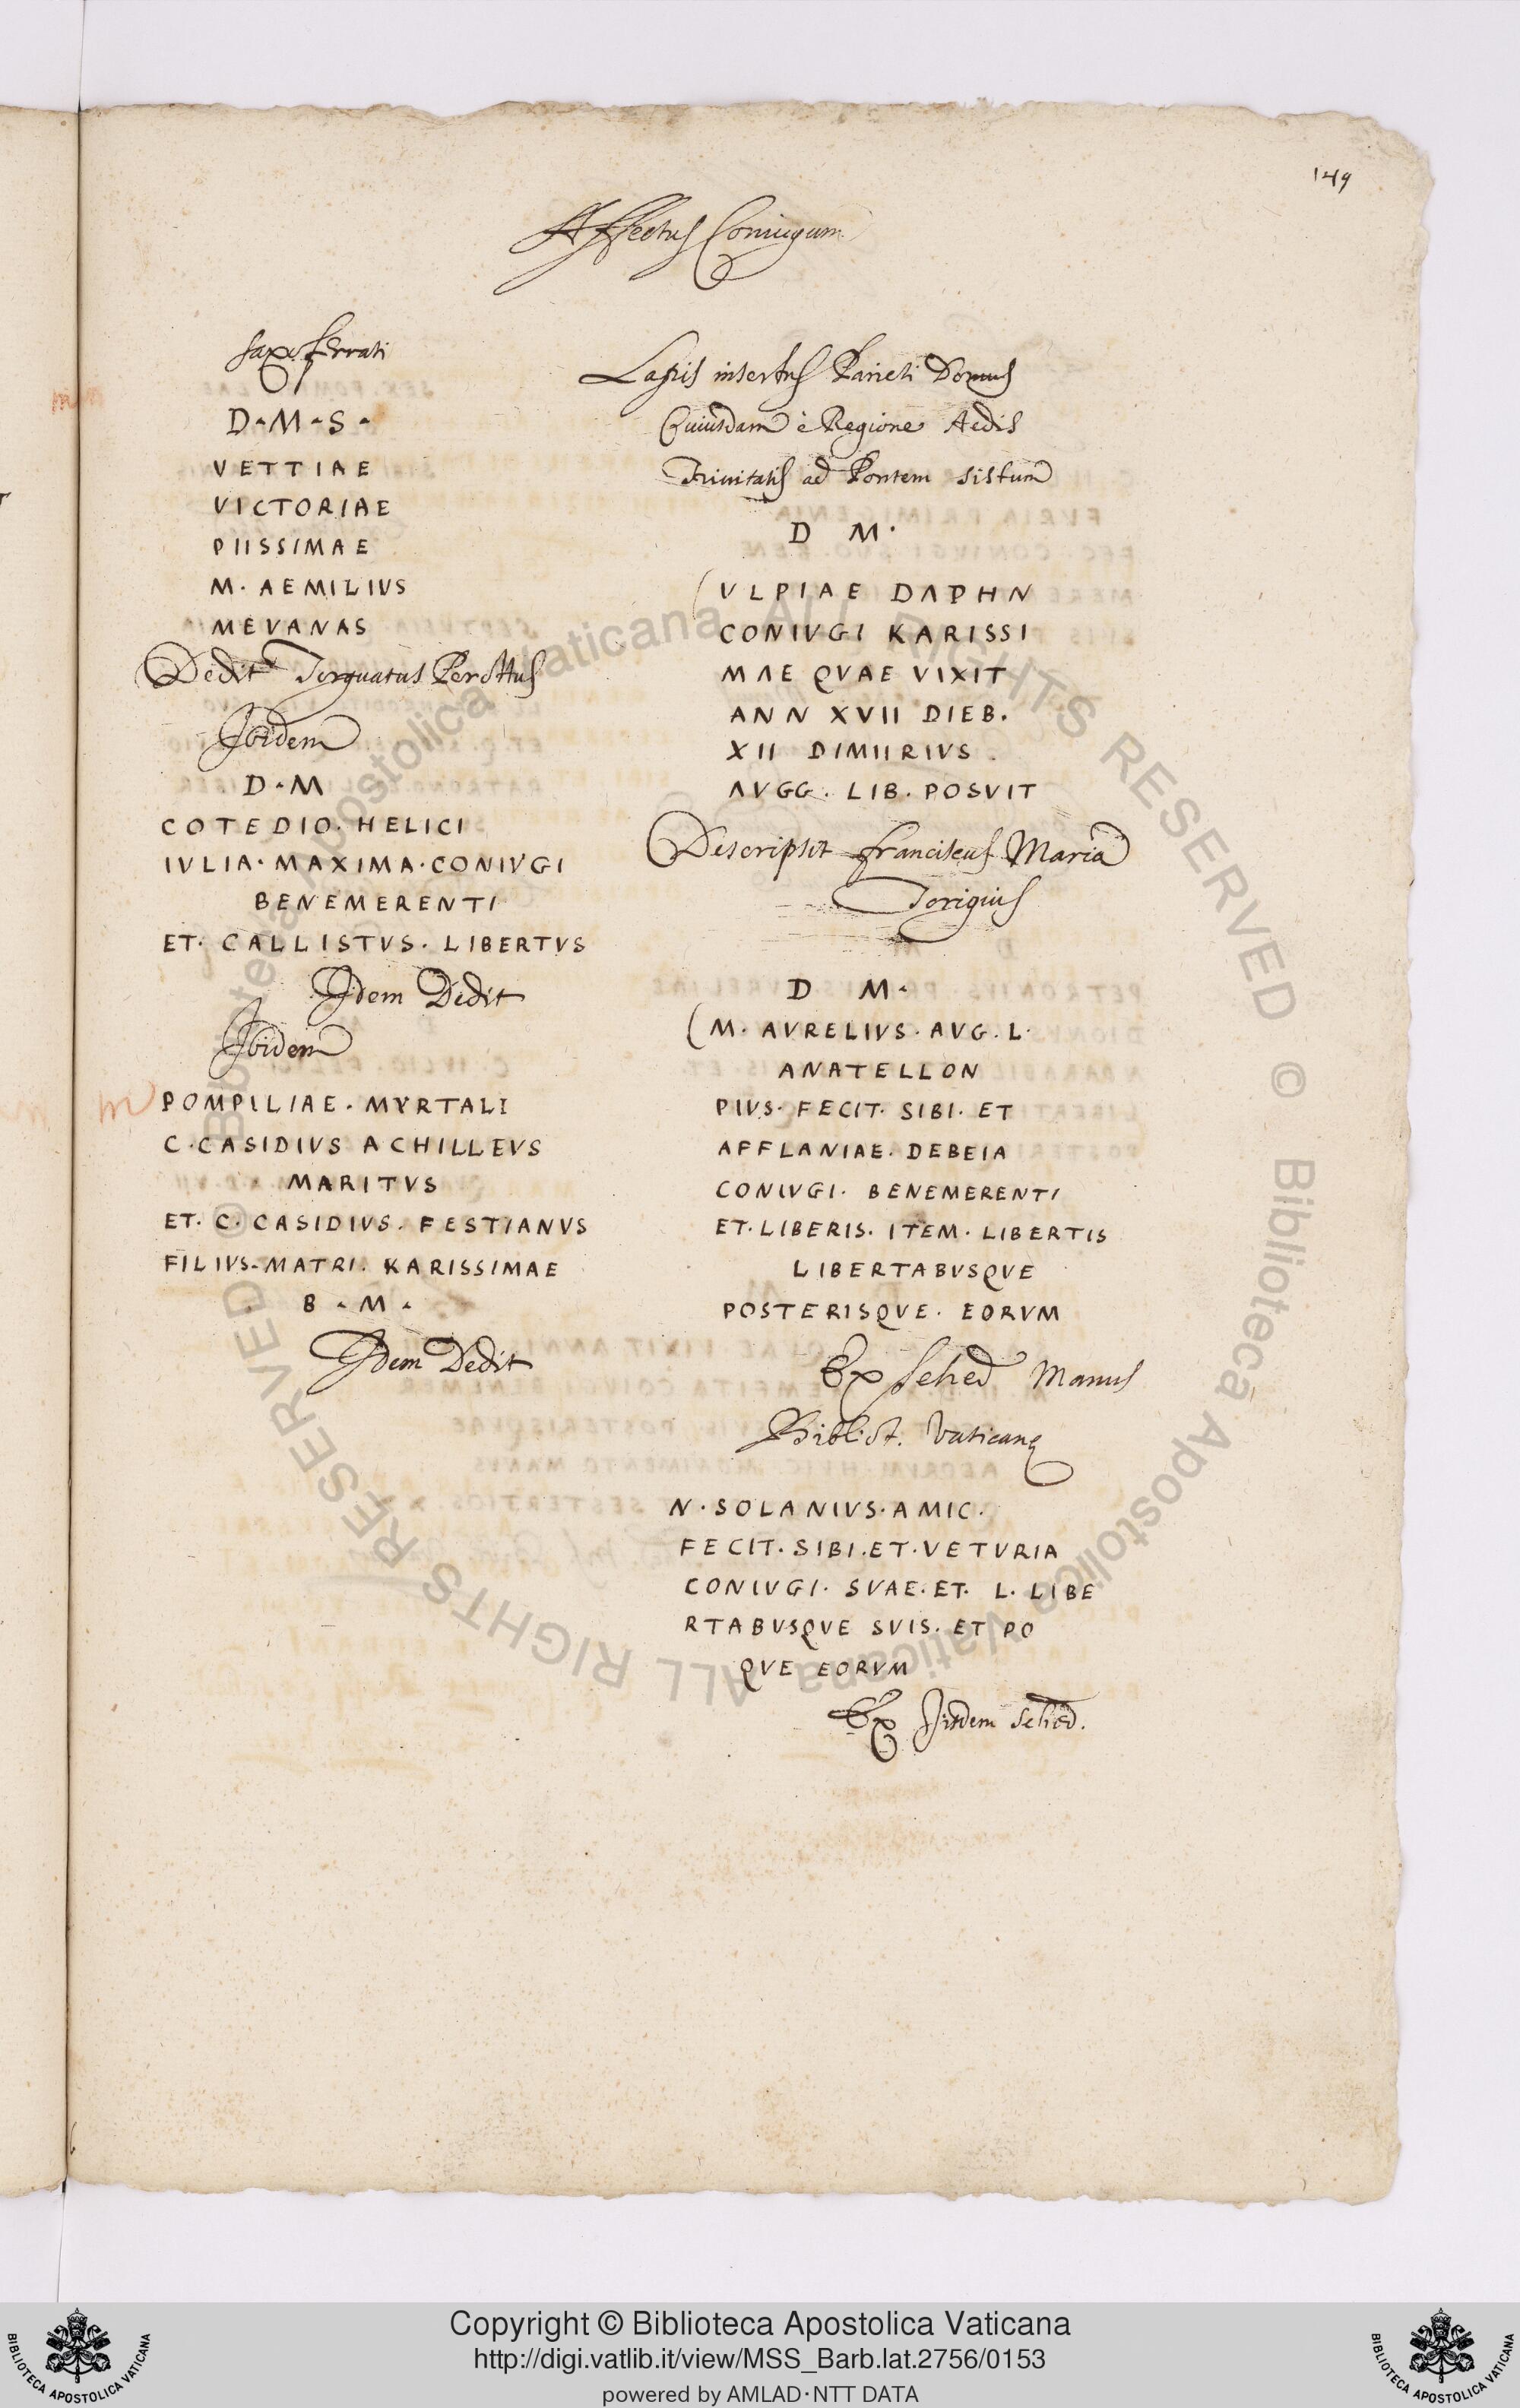 149
Affectus Coniugum
Saxoferrati
D·M·S·
VETTIAE
VICTORIAE
PIISSIMAE
M. AEMILIVS
MEVANAS
Dedit Torquatus Perottus
Ibidem
D·M
COTEDIO. HELICI
IVLIA· MAXIMA·CONIVGI
BENEMERENTI
ET· CALLISTVS. LIBERTVS
Idem Dedit
Ibidem
m POMPILIAE. MYRTALI
C·CASIDIVS ACHILLEVS
MARITVS
ET. C. CASIDIVS. FESTIANVS
FILIVS·MATRI. KARISSIMAE
B·M·
Idem Dedit
Lapis insertus Parieti Domus
Cuiusdam è Regione Aedis
Trinitatis ad Pontem Sistum
D M·
(VLPIAE DAPHN
CONIVGI KARISSI
MAE QVAE VIXIT
ANN XVII DIEB.
XII DIMIIRIVS.
AVGG. LIB. POSVIT
Descripsit Franciscus Maria
Torigius
D M·
(M. AVRELIVS. AVG. L.
ANATELLON
PIVS· FECIT· SIBI· ET
AFFLANIAE. DEBEIA
CONIVGI. BENEMERENTI
ET·LIBERIS. ITEM· LIBERTIS
LIBERTABVSQVE
POSTERISQVE. EORVM
Ex Sched Manus
Bibliot. Vaticanę
N·SOLANIVS·AMIC·
FECIT·SIBI.ET·VETVRIA
CONIVGI· SVAE·ET· L. LIBE
RTABVSQVE SVIS. ET PO
QVE EORVM
Ex Iisdem Sched.
Biblioteca Apostolica Vaticana ALL RIGHTS RESERVED ©
Biblioteca Apostolica Vaticana ALL RIGHTS RESERVED ©
BIBLIOTECA APOSTOLICA VATICANA
Copyright © Biblioteca Apostolica Vaticana
http://digi.vatlib.it/view/MSS_Barb.lat.2756/0153
powered by AMLAD·NTT DATA
BIBLIOTECA APOSTOLICA VATICANA